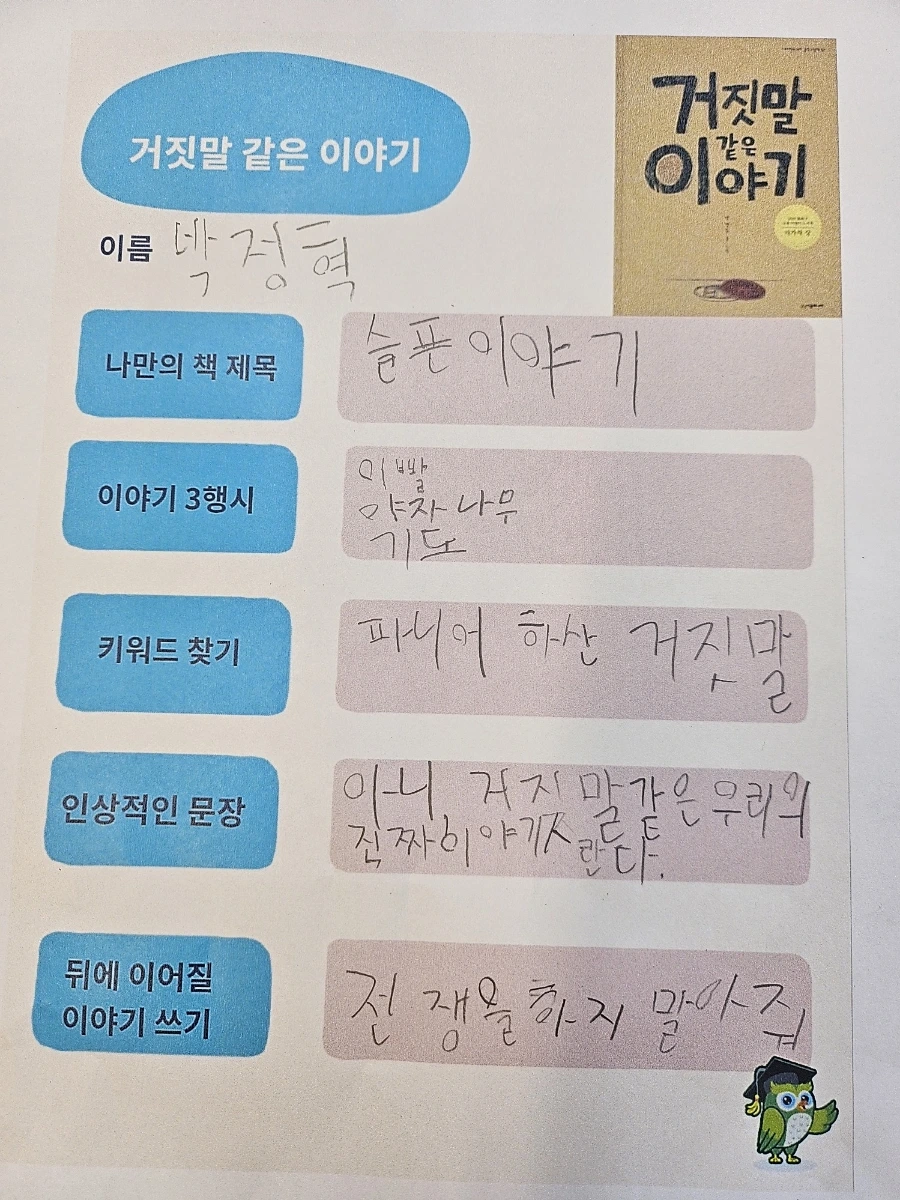 거짓말 같은 이야기
거짓말
같은
이야기
이름 박정혁
나만의 책 제목
슬픈이야기
이야기 3행시
이빨
야자나무
기도
키워드 찾기
파니어 하산 거짓말
인상적인 문장
아니 거지말같은우리의
진짜이야기란다.
뒤에 이어질
이야기 쓰기
전쟁을하지 말아줘